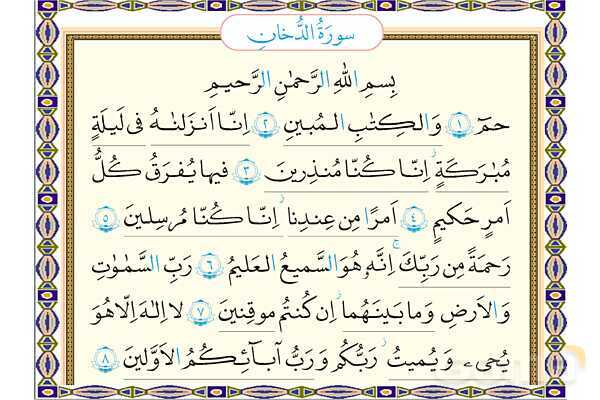 سورَةُ الدُّخانِ
بِسمِ اللهِ الرَّحمٰنِ الرَّحيمِ
حمٓ ١ وَالكِتٰبِ المُبينِ ٢ اِنّا اَنزَلنٰهُ فى لَيلَةٍ
مُبٰرَكَةٍ اِنّا كُنّا مُنذِرينَ ٣ فيها يُفرَقُ كُلُّ
اَمرٍ حَكيمٍ ٤ اَمرًا مِن عِندِنا اِنّا كُنّا مُرسِلينَ ٥
رَحمَةً مِن رَبِّكَ اِنَّهٗ هُوَ السَّميعُ العَليمُ ٦ رَبِّ السَّمٰوٰتِ
وَالاَرضِ وَما بَينَهُما اِن كُنتُم موقِنينَ ٧ لا اِلٰهَ اِلّا هُوَ
يُحيۦ وَ يُميتُ رَبُّكُم وَ رَبُّ آبآئِكُمُ الاَوَّلينَ ٨